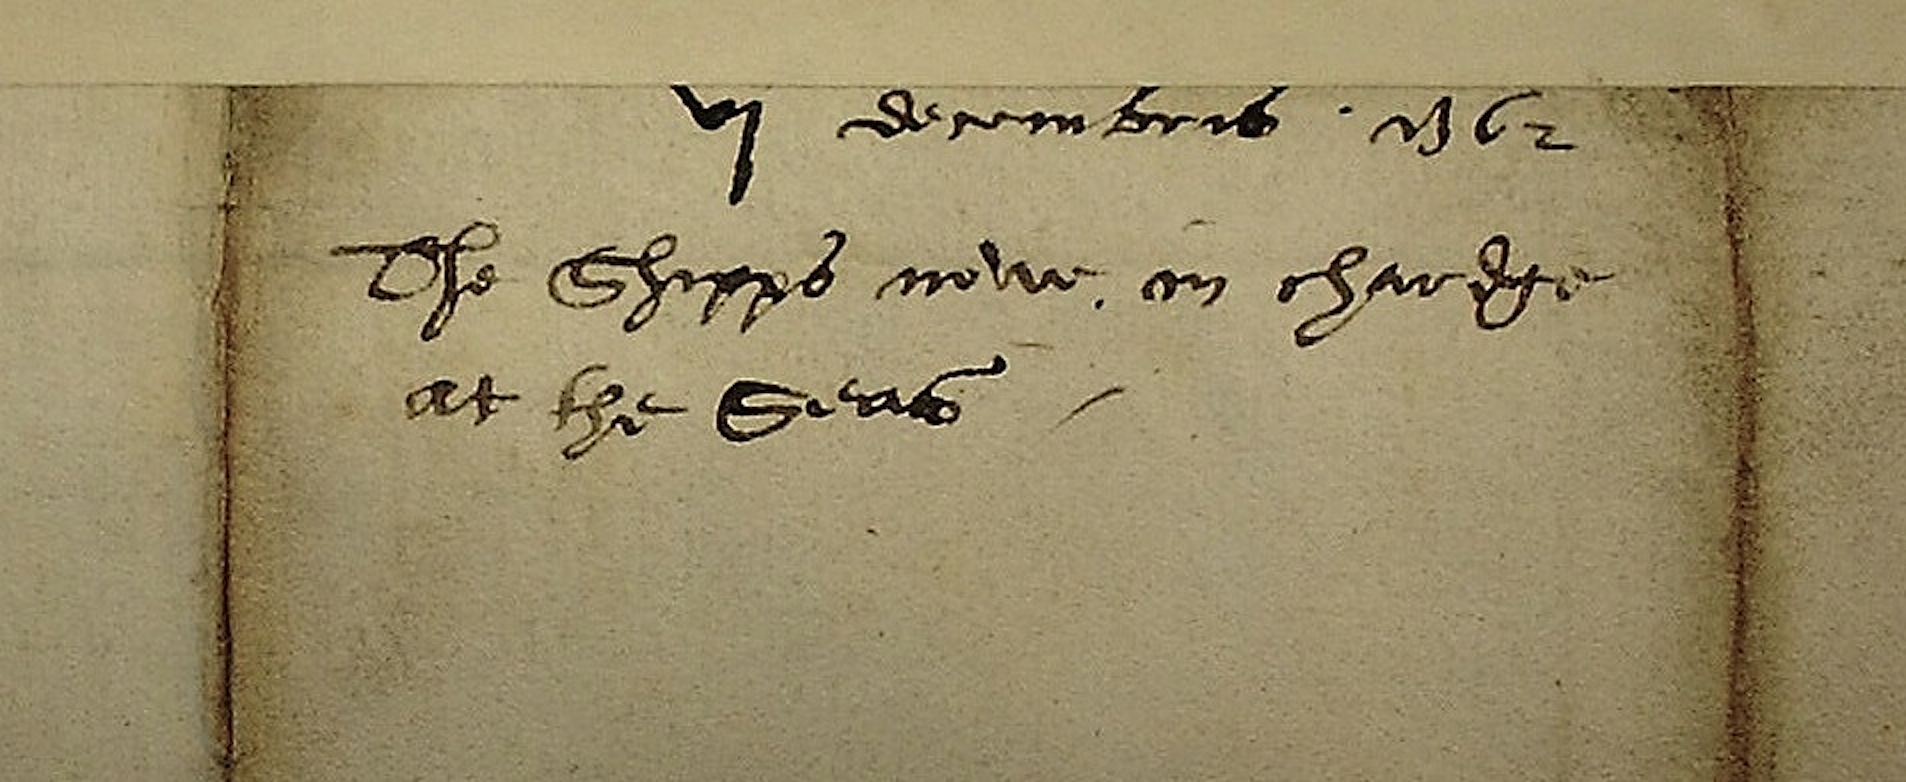 vj decembris · 1562
The Shipps nowe in chardge
at the Seas /